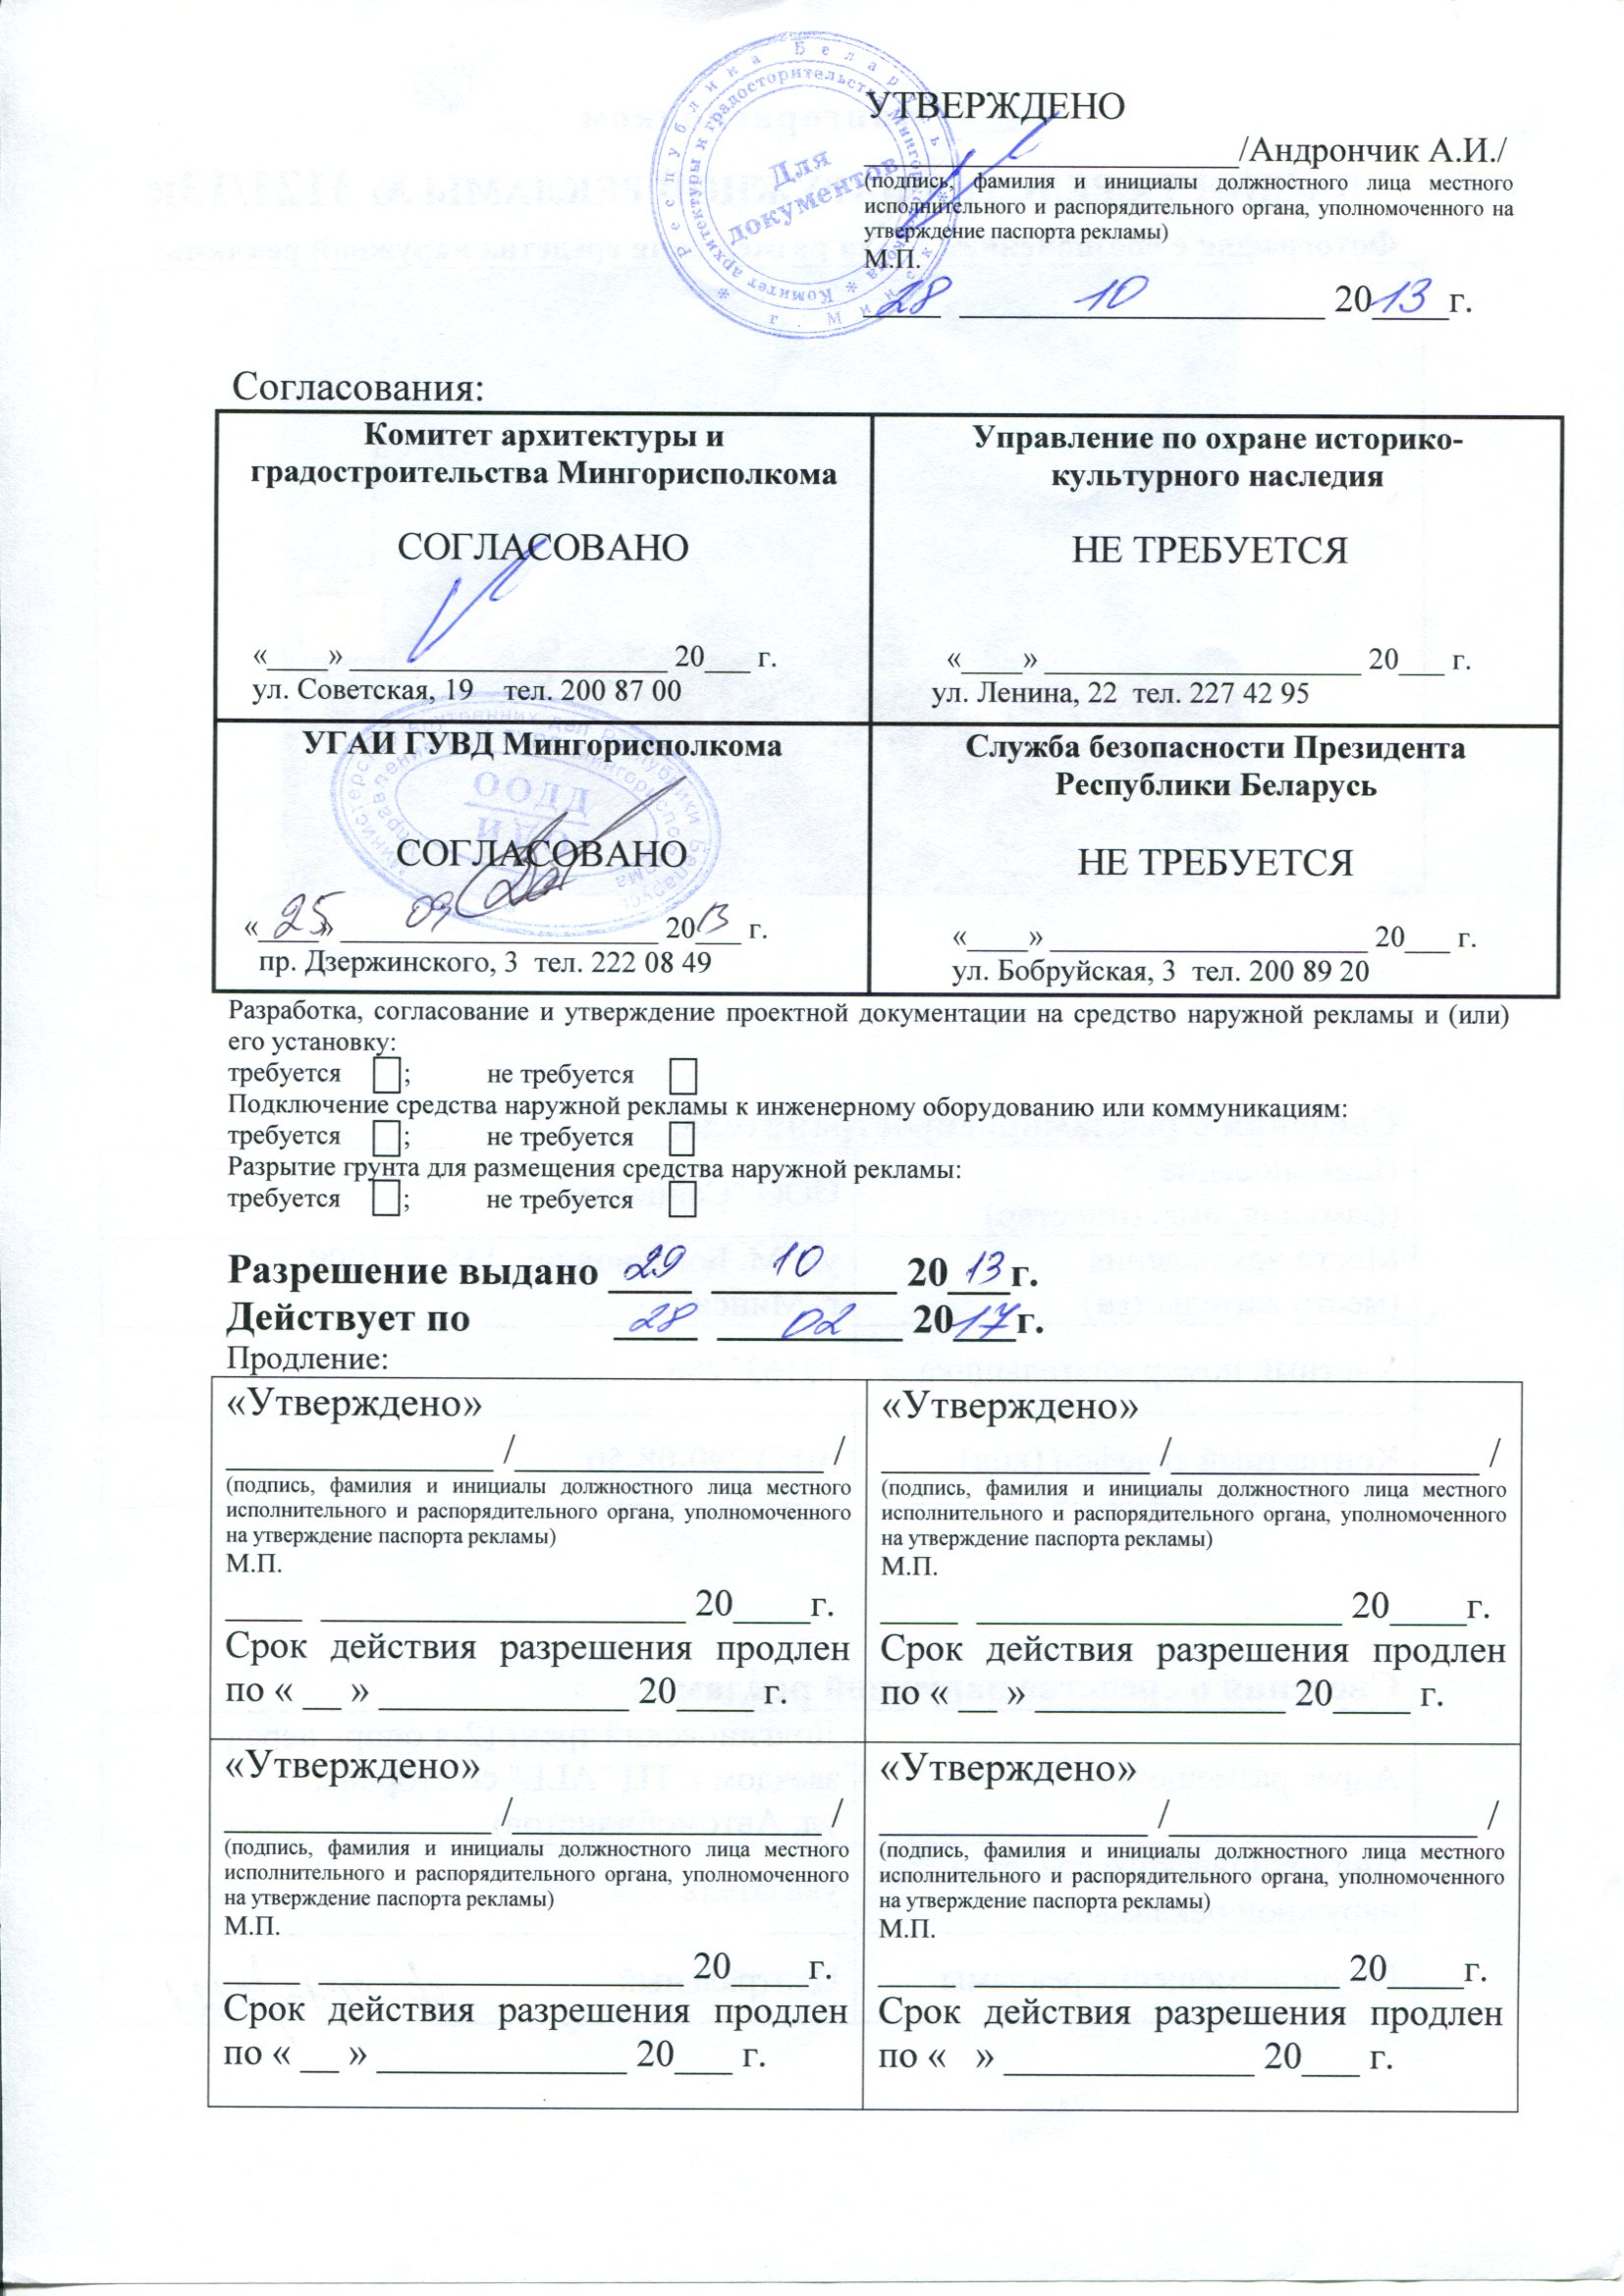 УТВЕРЖДЕНО
/Андрончик А.И./
(подпись, фамилия и инициалы должностного лица местного
исполнительного и распорядительного органа, уполномоченного на
утверждение паспорта рекламы)
М.П.
28 10 2013 г.
Республика Беларусь
г. Минск
Комитет архитектуры и градостроительства Мингорисполкома
Для
документов
Согласования:
Комитет архитектуры и
градостроительства Мингорисполкома
СОГЛАСОВАНО
«____» ____________________ 20___ г.
ул. Советская, 19 тел. 200 87 00
Управление по охране историко-
культурного наследия
НЕ ТРЕБУЕТСЯ
«____» ____________________ 20___ г.
ул. Ленина, 22 тел. 227 42 95
УГАИ ГУВД Мингорисполкома
ООДД
СОГЛАСОВАНО
«25» 09 2013 г.
пр. Дзержинского, 3 тел. 222 08 49
Служба безопасности Президента
Республики Беларусь
НЕ ТРЕБУЕТСЯ
«____» ____________________ 20___ г.
ул. Бобруйская, 3 тел. 200 89 20
Разработка, согласование и утверждение проектной документации на средство наружной рекламы и (или)
его установку:
требуется ; не требуется
Подключение средства наружной рекламы к инженерному оборудованию или коммуникациям:
требуется ; не требуется
Разрытие грунта для размещения средства наружной рекламы:
требуется ; не требуется
Разрешение выдано 29 10 2013г.
Действует по 28 02 2017г.
Продление:
«Утверждено»
______________ /________________ /
(подпись, фамилия и инициалы должностного лица местного
исполнительного и распорядительного органа, уполномоченного
на утверждение паспорта рекламы)
М.П.
____ ___________________ 20____г.
Срок действия разрешения продлен
по « __ » _____________ 20____ г.
«Утверждено»
______________ /________________ /
(подпись, фамилия и инициалы должностного лица местного
исполнительного и распорядительного органа, уполномоченного
на утверждение паспорта рекламы)
М.П.
____ ___________________ 20____г.
Срок действия разрешения продлен
по « __ » _____________ 20____ г.
«Утверждено»
______________/________________ /
(подпись, фамилия и инициалы должностного лица местного
исполнительного и распорядительного органа, уполномоченного
на утверждение паспорта рекламы)
М.П.
____ ___________________ 20____г.
Срок действия разрешения продлен
по « __ » _____________ 20___ г.
«Утверждено»
______________ /________________ /
(подпись, фамилия и инициалы должностного лица местного
исполнительного и распорядительного органа, уполномоченного
на утверждение паспорта рекламы)
М.П.
________________________ 20____г.
Срок действия разрешения продлен
по « » _____________ 20___ г.